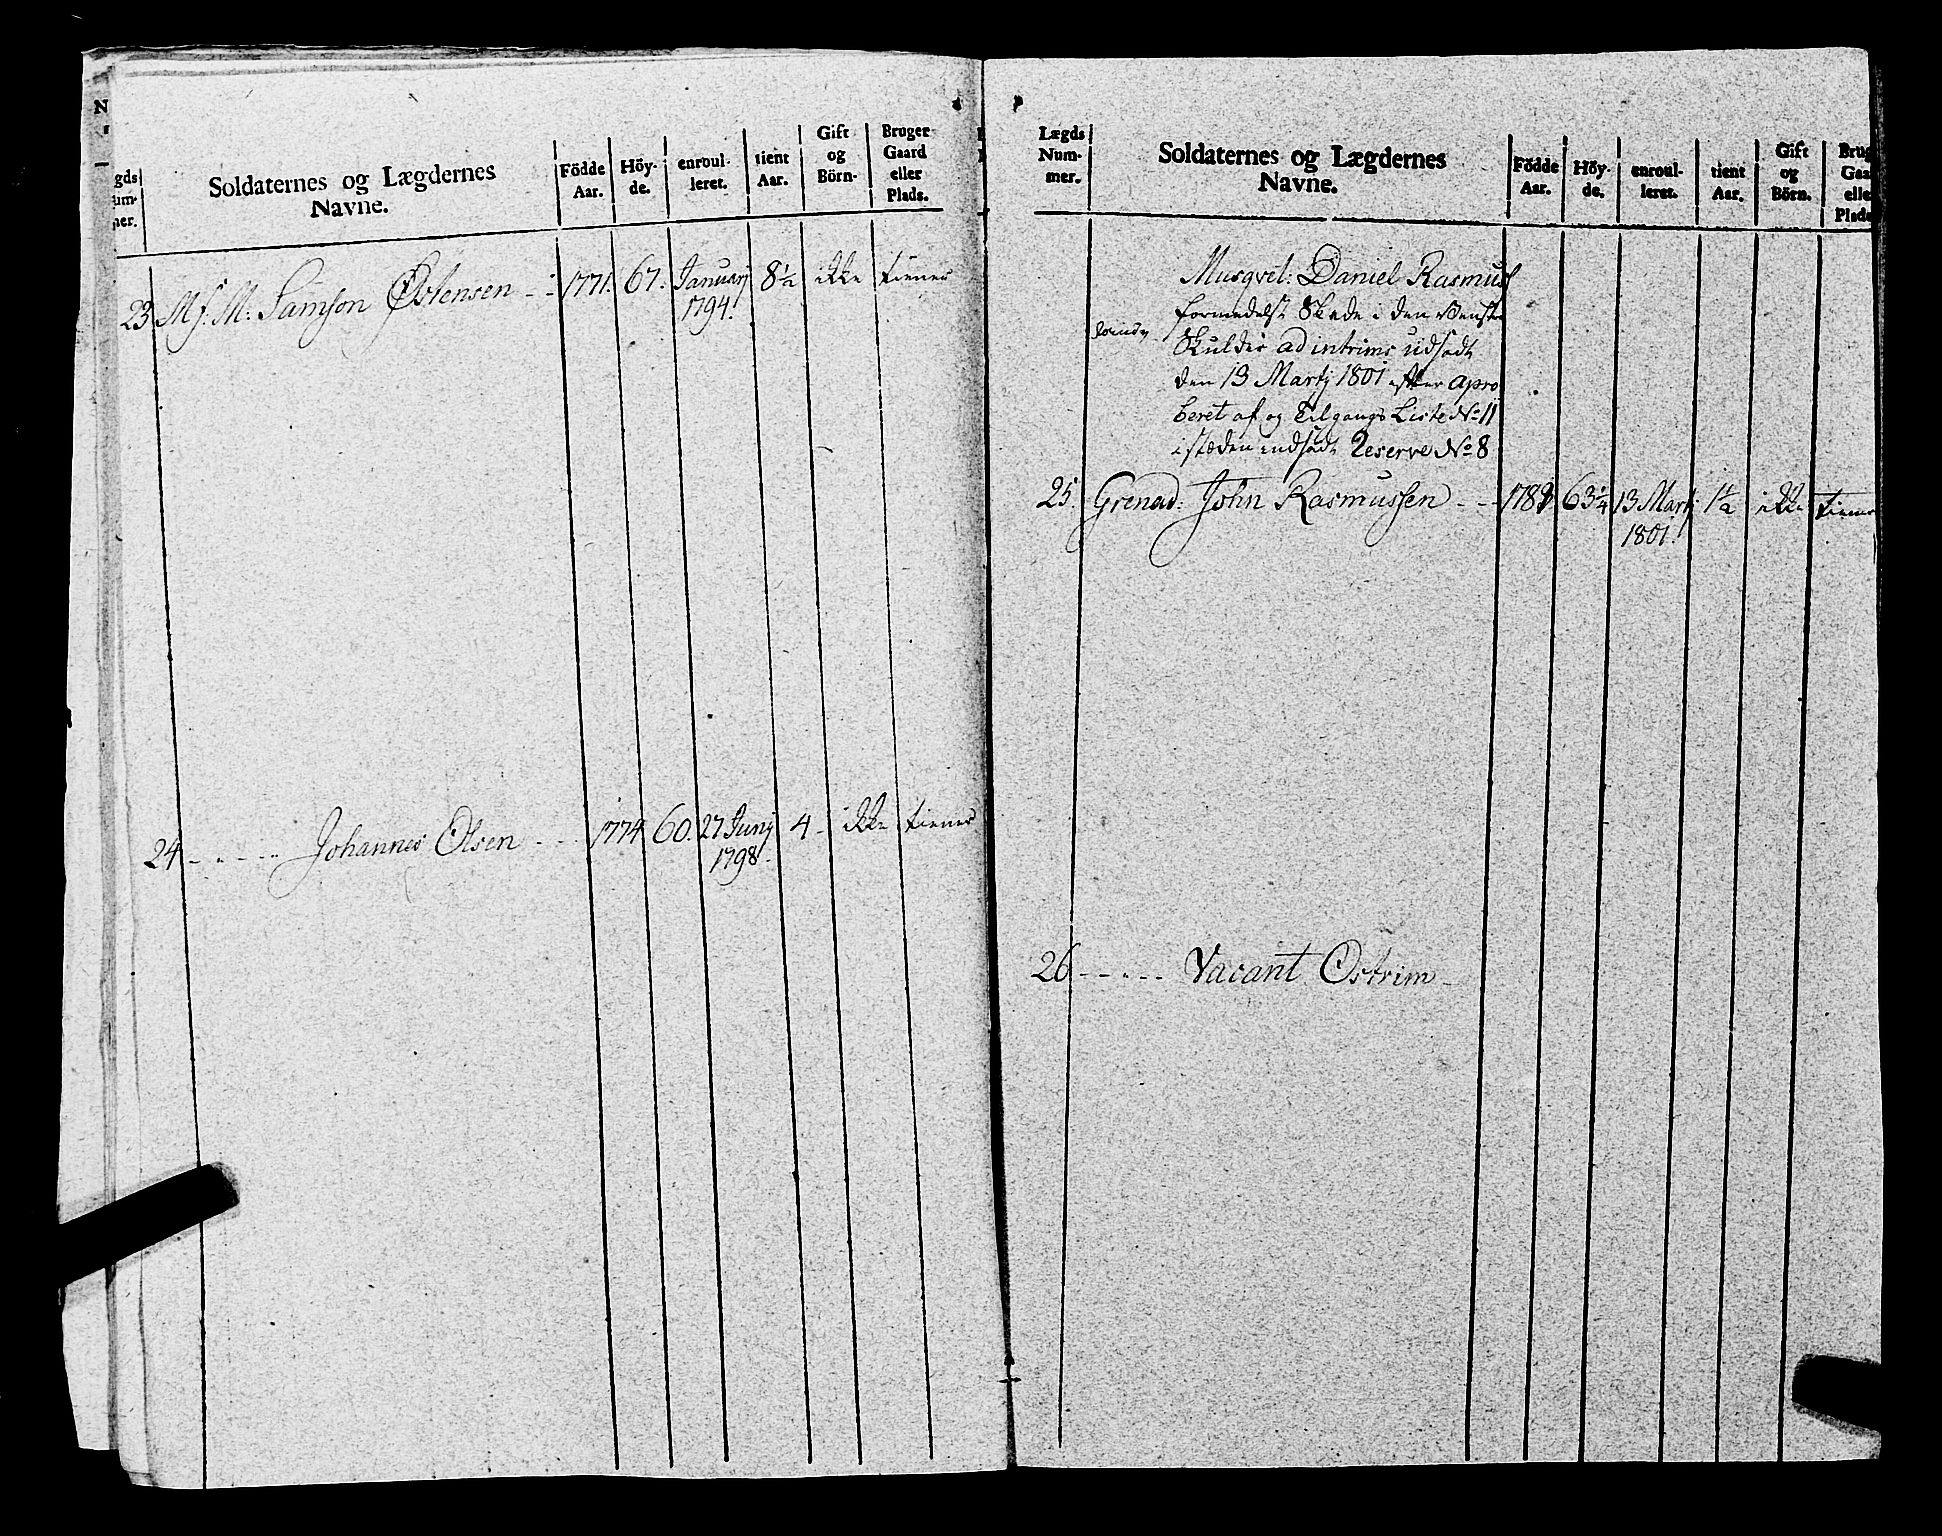 Soldaternes og Lægdernes
Navne.
Födde
Aar.
Höy-
de.
enroul-
leret.
tient
Aar.
Gift
og
Börn-
Bruger
Gaard
eller
Plads.
23 Mf. M: Samson Östensen - - 1771. 67. Januarj 8 1/2 ikke tiener
1794.
24 - „ - - „ Johannes Olsen - - - 1774 60. 27 Junj 4 - ikke tiener
1798.
Lægds
Num-
mer.
Soldaternes og Lægdernes
Navne.
Födde
Aar.
Höy-
de.
enroul-
leret.
tient
Aar.
Gift
og
Börn.
Brug
Gaa
elle
Plads
Musqvet: Daniel Rasmus
formedelst Skade i den Venstre
Skulder ad intrims udsadt
den 13 Martj 1801 efter apro
beret af og Tilgangs Liste No 11
i stæden indsadt Reserve No 8
25. Grenad: John Rasmussen - - 63 1/4 13 Martj 1 1/2 ikke tiener
1801.
26 - - „ - - Vacant Ostrim -